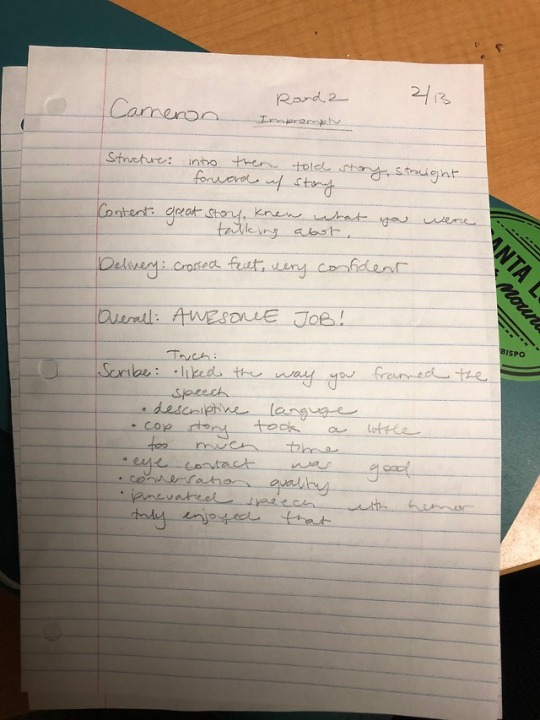 Cameron
Rond 2
Impromptu
2/13
Structure: intro then told story, straight
forward w/ story
Content: great story, knew what you were
talking abot.
Delivery: crossed feet, very confident
Overall: AWESOME JOB!
Truch:
Scribe: • liked the way you framed the
speech
• descriptive languge
• cop story took a little
too much time
• eye contact was good
• conversation quality
• speech with humor
truly enjoyed that
ANTA LU
mount
BISPO